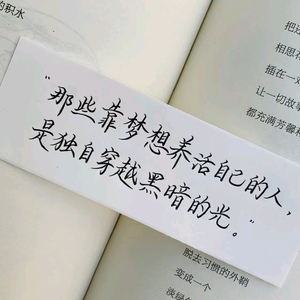 的积水
“那些靠梦想养活自己的人,
是独自穿越黑暗的光。”
相思
插在一
让一切故
都充满芳馨
脱去习惯的外鞘
变成一个